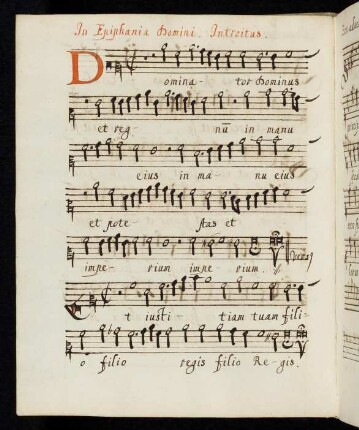 In Epiphania Domini. Introitus.
Domina- tor Dominus
et reg nū in manu
eius in ma- nu eius
et pote- stas et
impe- rium impe rium.
Et iusti- tiam tuam fili-
o filio regis filio Re-gis.